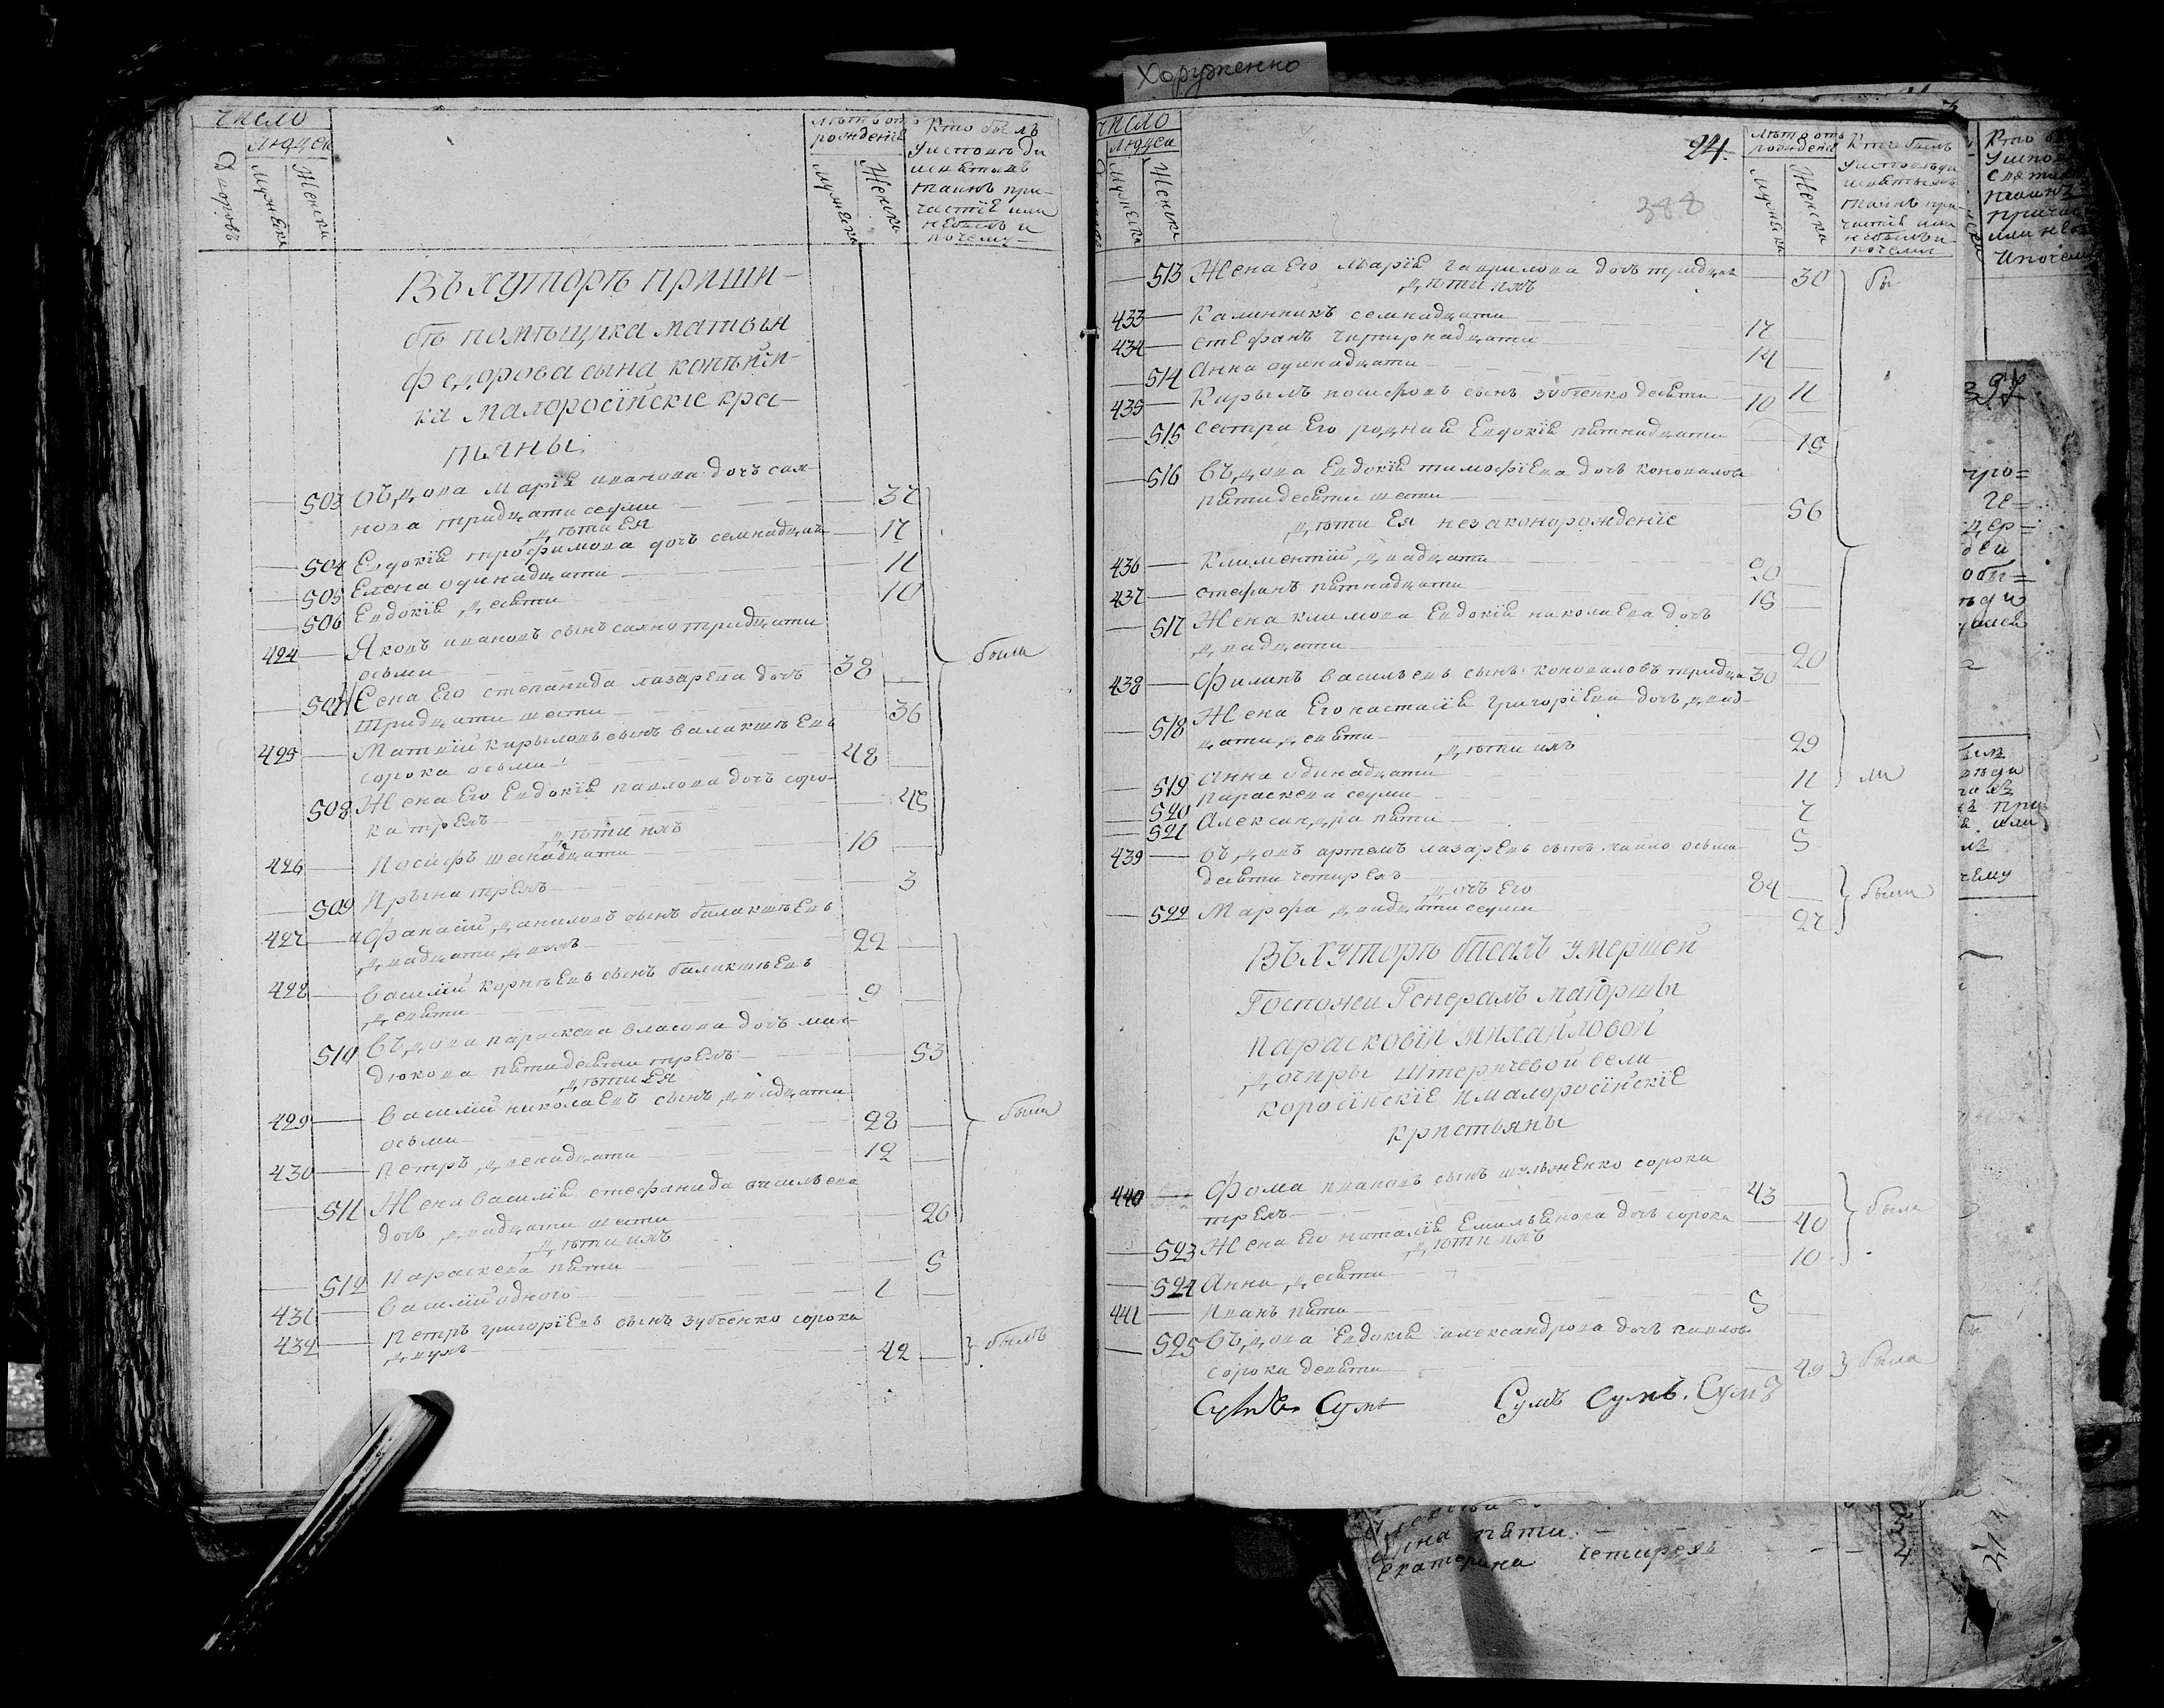 Хоруженко
число
людей
Дворовъ
Мужеска
Женска
лѣтъ отъ
рождения
Мужеска
Женска
Кто былъ
У исповѣди
и святыхъ
таинъ при-
частiе или
не былъ и
почему
Въ хуторѣ приши-
бѣ помѣщика матвея
федорова сына копѣйчи-
ка малоросiйскiе крес-
тьяны
503 въдова Марiя иванова дочъ сах-
нова тридцати седми 37
дѣти Ея
504 Евдокiя трофимова дочъ семнадцать 17
505 Елена одинадцати 11
506 Евдокiя десяти 10
424 Яковъ ивановъ сынъ сахно тридцати
осьми 38
507 Жена Его степанида лазарева дочъ
тридцати шести 36
были
425 Матвiй кирыловъ сынъ балакшѣевъ
сорока осьми 48
508 Жена Его Евдокiя павлова дочъ соро-
ка трехъ 45
дѣти ихъ
426 Иосифъ шеснадцати 16
509 Ирына трехъ 3
427 Афанасiй даниловъ сынъ балакшѣевъ
двадцати двухъ 22
428 василiй корнѣевъ сынъ балакшѣевъ
девяти 9
510 въдова параскева власова дочъ ман-
дюкова пятидесяти трехъ 53
дѣти Ея
429 василiй николаевъ сынъ двадцати
осьми 28
были
430 петръ двенадцати 12
511 Жена василiя стефанида васильева
дочъ двадцати шести 26
дѣти ихъ
512 параскева пяти 5
431 василiй одного 1
432 петръ григорiевъ сынъ зубченко сорока
двухъ 42 былъ
число
людей
Мужеска
Женска
24.
388
лѣтъ отъ
рождения
Мужеска
Женска
Кто былъ
У исповѣди
и святыхъ
таинъ при-
частiе или
не былъ и
почему
513 Жена Его Марiя гаврилова дочъ тридцать 30 бы
дѣти ихъ
433 Калинникъ семнадцати 17
434 стефанъ читирнадцати 14
514 Анна одинадцати 11
435 Кирылъ иосифовъ сынъ зубченко десяти 10
515 сестра Его родная Евдокiя пятнадцати 15
516 въдова Евдокiя тимофiева дочъ коновалова
пятидесяти шести 56
дѣти Ея незаконорожденiе
436 Климентiй двадцати 20
437 стефанъ пятнадцати 15
517 Жена климова Евдокiя николаева дочъ
двадцати 20
438 Филипъ васильевъ сынъ коноваловъ тридца 30
518 Жена Его настасiя григорiева дочъ двад-
цати девяти 29
дѣти ихъ
519 Анна одинадцати 11 ли
520 параскева седми 7
521 Александра пяти 5
439 въдовъ артемъ лазаревъ сынъ осьми-
десяти четирехъ 84
дочъ Его были
522 Марфа двадцати седми 27
Въ хуторѣ басахъ умершей
Госпожи Генералъ маiорши
парасковiи михайловой
дочиры Штеричевой вели
коросiйскiе и малоросiйскiе
кристьяны
440 Фома ивановъ сынъ шульженко сорока
трехъ 43
были
523 Жена Его наталiя Емильянова дочъ сорока 40
дѣти ихъ
524 Анна десяти 10
441 Иванъ пяти 5
525 въдова Евдокiя александрова дочъ павлова
сорока девяти 49 была
Сумъ Сумъ. Сумъ
пяти
Екатерина четирехъ